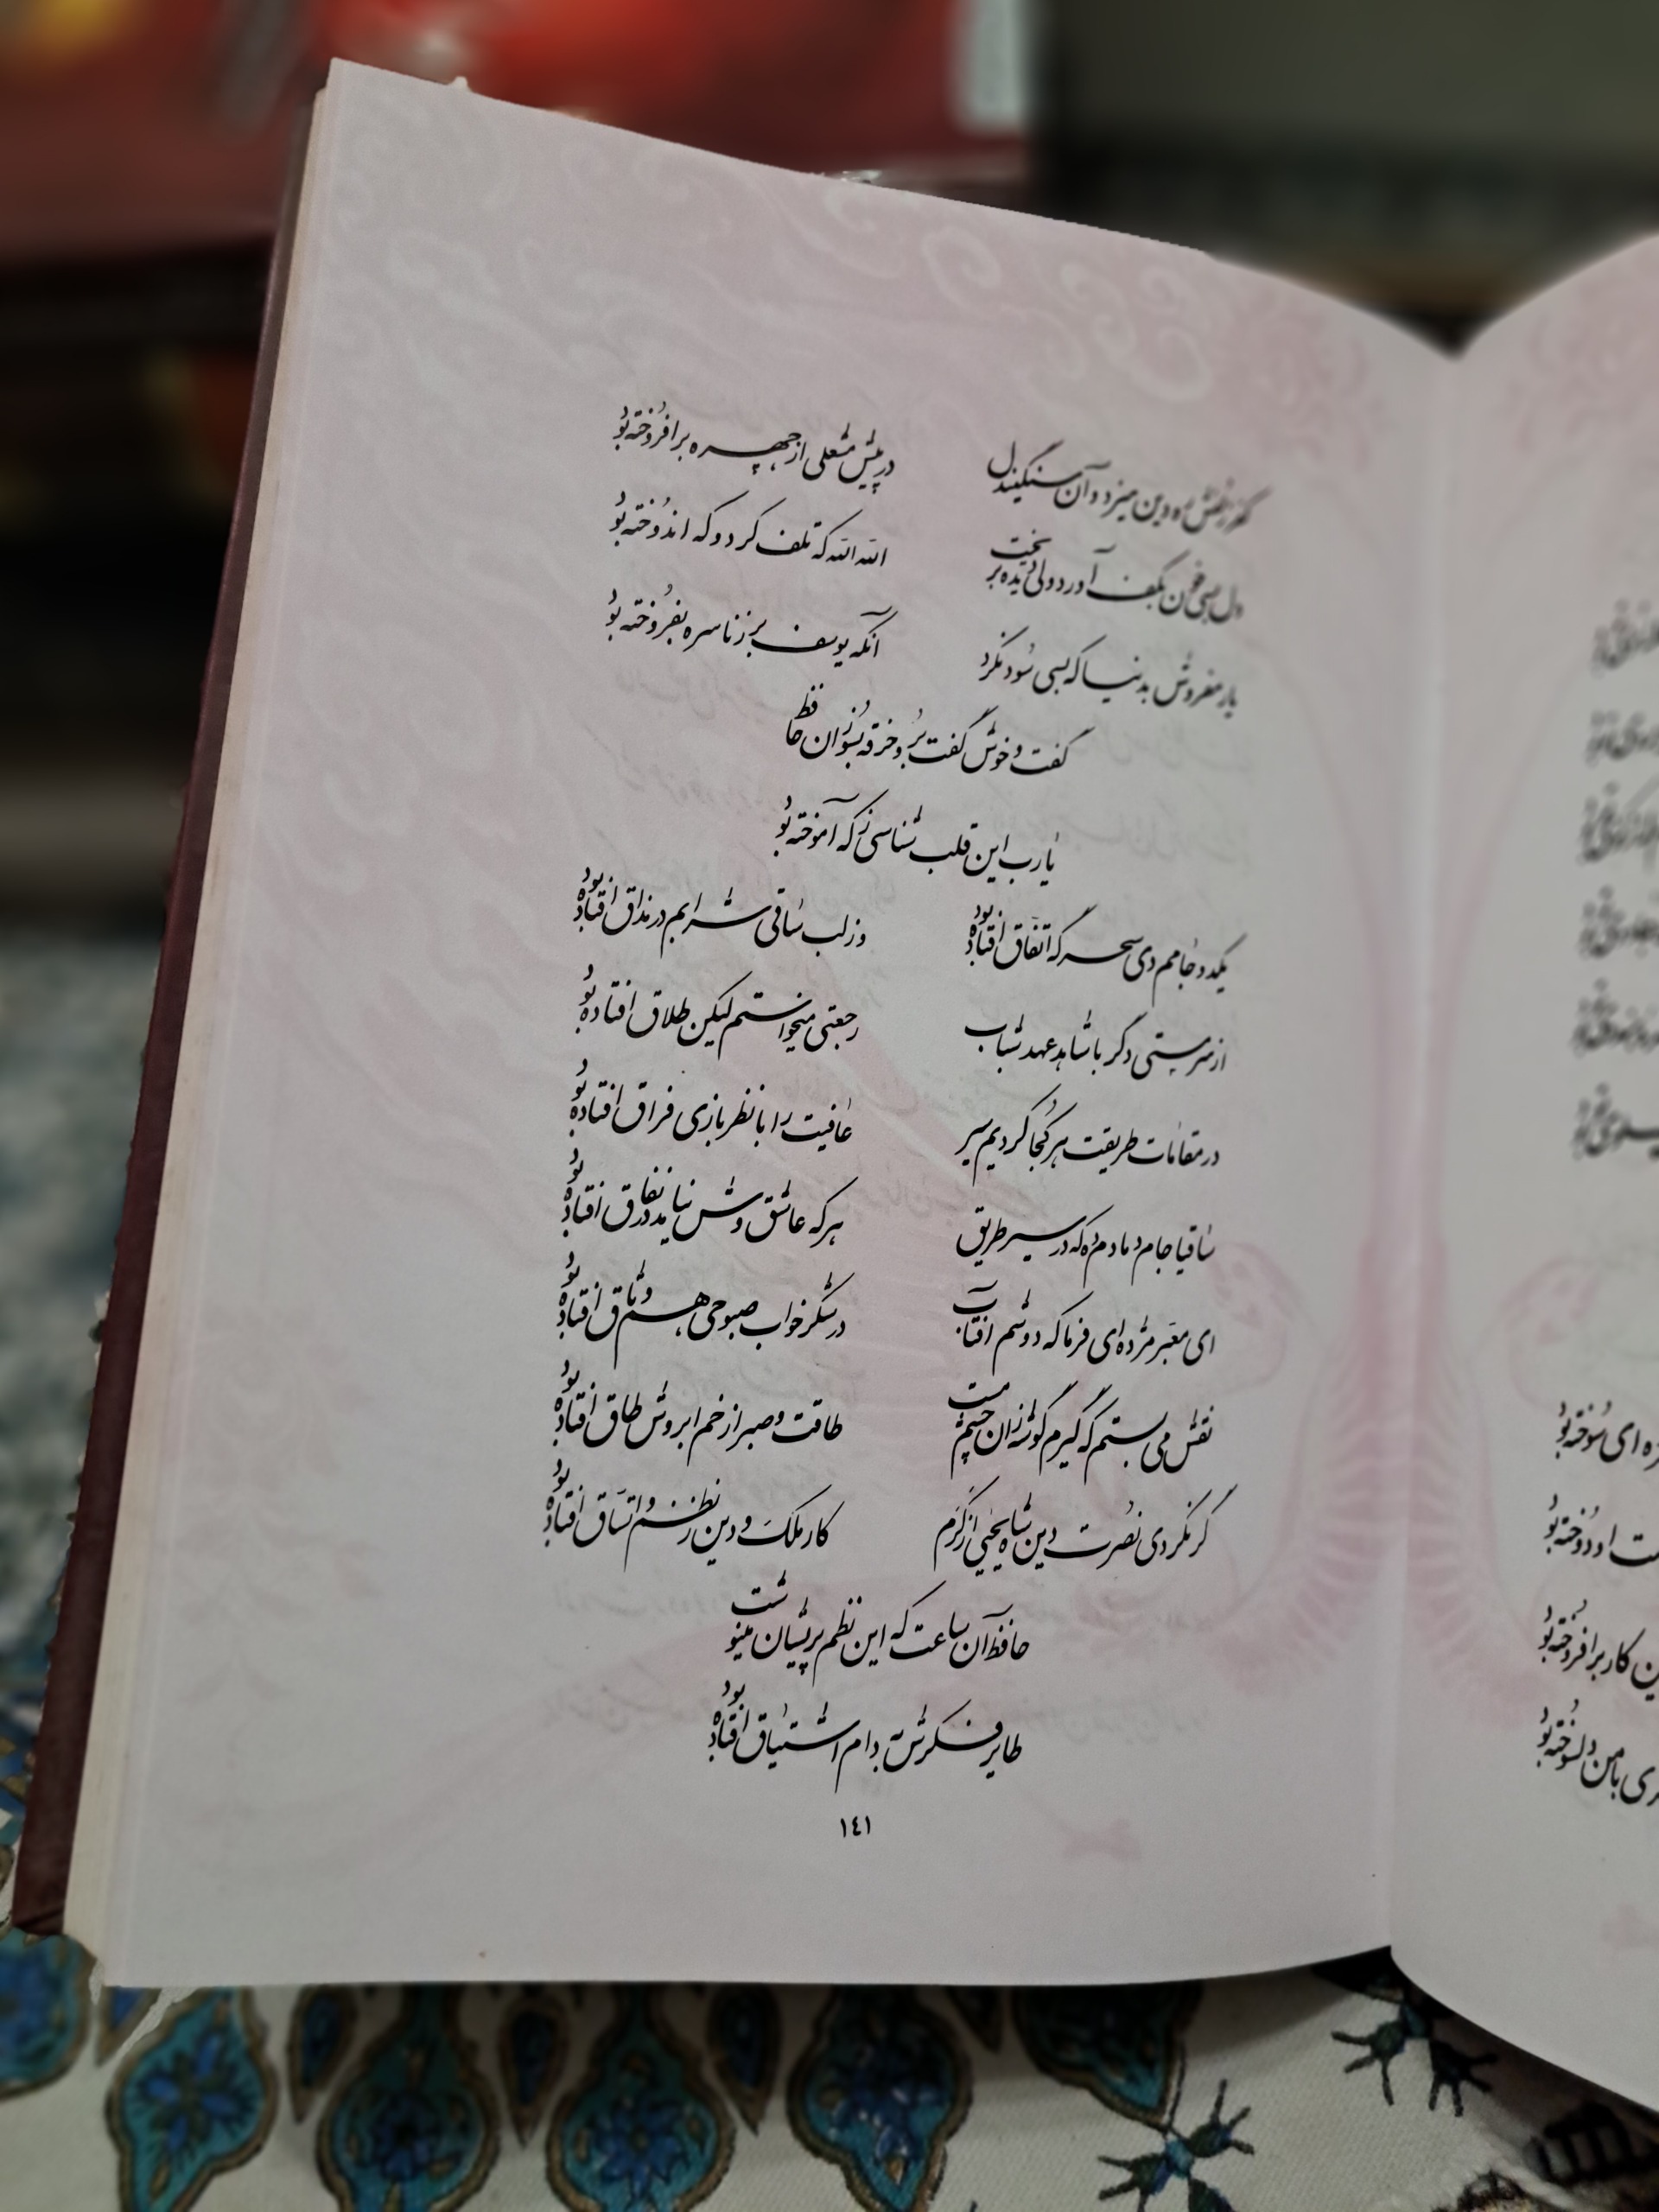 کفر زلفش ره دین میزد و آن سنگیندل
در پیش مشعلی از چهره برافروخته بود
دل بسی خون بکف آورد ولی دیده بریخت
الله الله که تلف کرد و که اندوخته بود
یار مفروش بدنیا که بسی سود نکرد
آنکه یوسف بزر ناسره بفروخته بود
گفت و خوش گفت برو خرقه بسوزان حافظ
یارب این قلب شناسی ز که آموخته بود
یکدو جامم دی سحرگه اتفاق افتاده بود
وز لب ساقی شرابم در مذاق افتاده بود
از سر مستی دگر با شاهد عهد شباب
رجعتی میخواستم لیکن طلاق افتاده بود
در مقامات طریقت هر کجا کردیم سیر
عافیت را با نظربازی فراق افتاده بود
ساقیا جام دمادم ده که در سیر طریق
هر که عاشق وش نیامد در نفاق افتاده بود
ای معبر مژده ای فرما که دوشم آفتاب
در شکرخواب صبوحی هم وثاق افتاده بود
نقش می بستم که گیرم گوشه زان چشم مست
طاقت و صبر از خم ابروش طاق افتاده بود
گر نکردی نصرت دین شاه یحیی از کرم
کار ملک و دین ز نظم و اتساق افتاده بود
حافظ آن ساعت که این نظم پریشان مینوشت
طایر فکرش به دام اشتیاق افتاده بود
۱٤۱